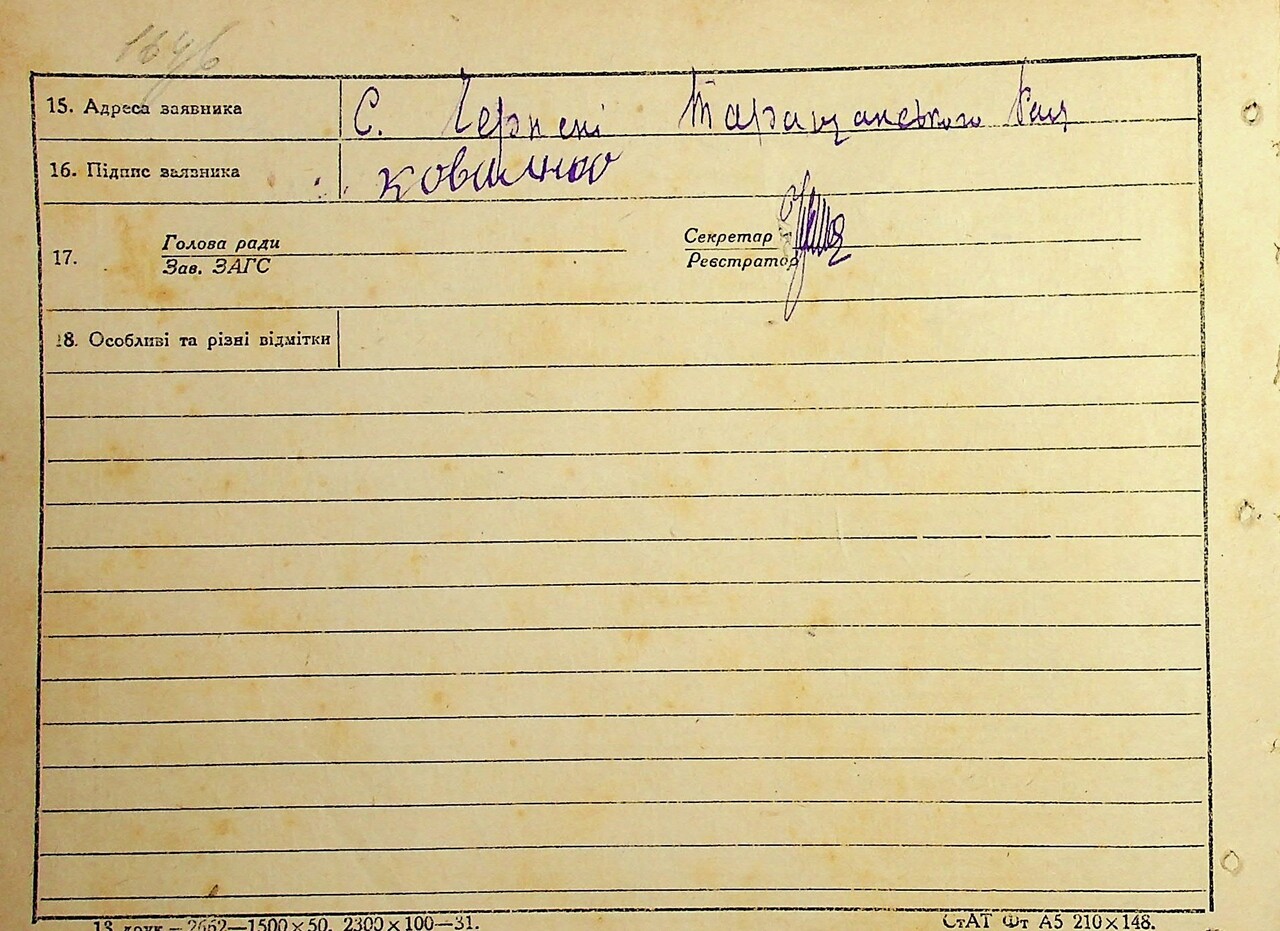 1646
15. Адреса заявника С. Чернені Таращанського Рай
16. Підпис заявника
17. Голова ради Секретар
Зав. ЗАГС Реєстратор
18. Особливі та різні відмітки
13 друк – 2662—1500×50. 2300×100—31. СтАТ Фт А5 210×148.